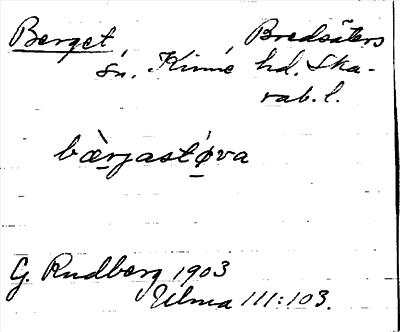 Berget Bredsäters
sn. Kinne hd. Ska-
rab. l.
bær̀jastǿva
G Rudberg 1903
Ulma 111:103.